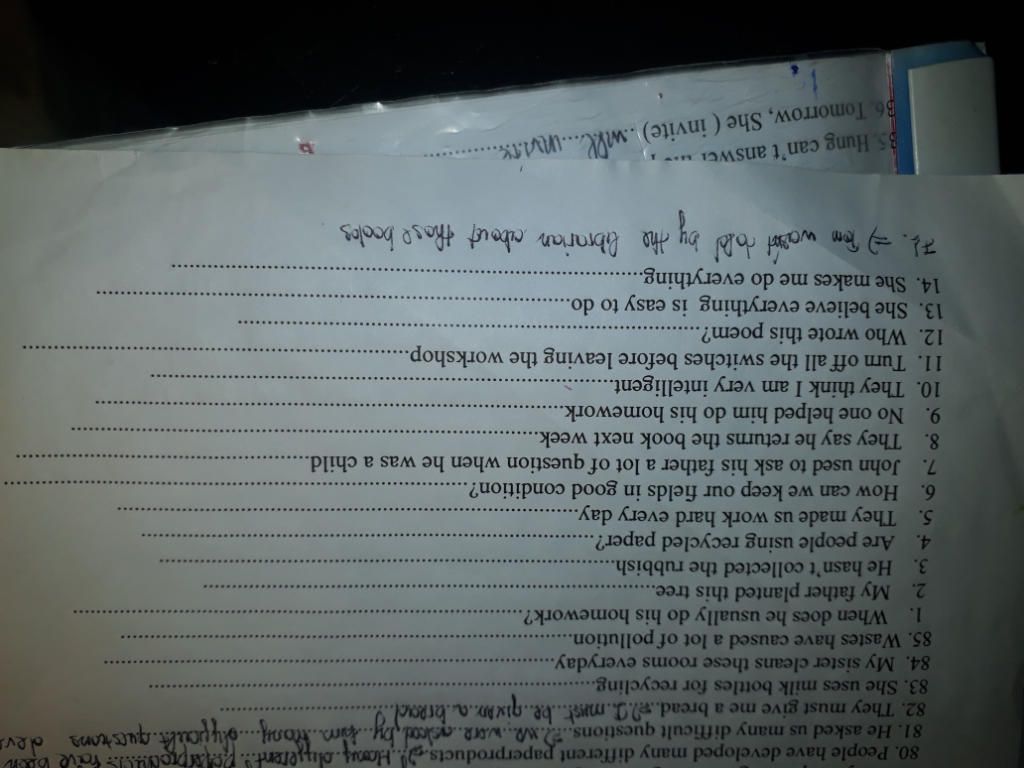 80. People have developed many different paperproducts. => Many different paperproducts have been deve
81. He asked us many difficult questions. => We were asked by him many difficult questions
82. They must give me a bread. => I must be given a bread.
83. She uses milk bottles for recycling
84. My sister cleans these rooms everyday
85. Wastes have caused a lot of pollution
1. When does he usually do his homework?
2. My father planted this tree
3. He hasn't collected the rubbish
4. Are people using recycled paper?
5. They made us work hard every day
6. How can we keep our fields in good condition?
7. John used to ask his father a lot of question when he was a child
8. They say he returns the book next week
9. No one helped him do his homework
10. They think I am very intelligent
11. Turn off all the switches before leaving the workshop
12. Who wrote this poem?
13. She believe everything is easy to do
14. She makes me do everything
71. => Tom wasn't told by the librarian about those books
5. Hung can't answer the
6. Tomorrow, She ( invite) will invite